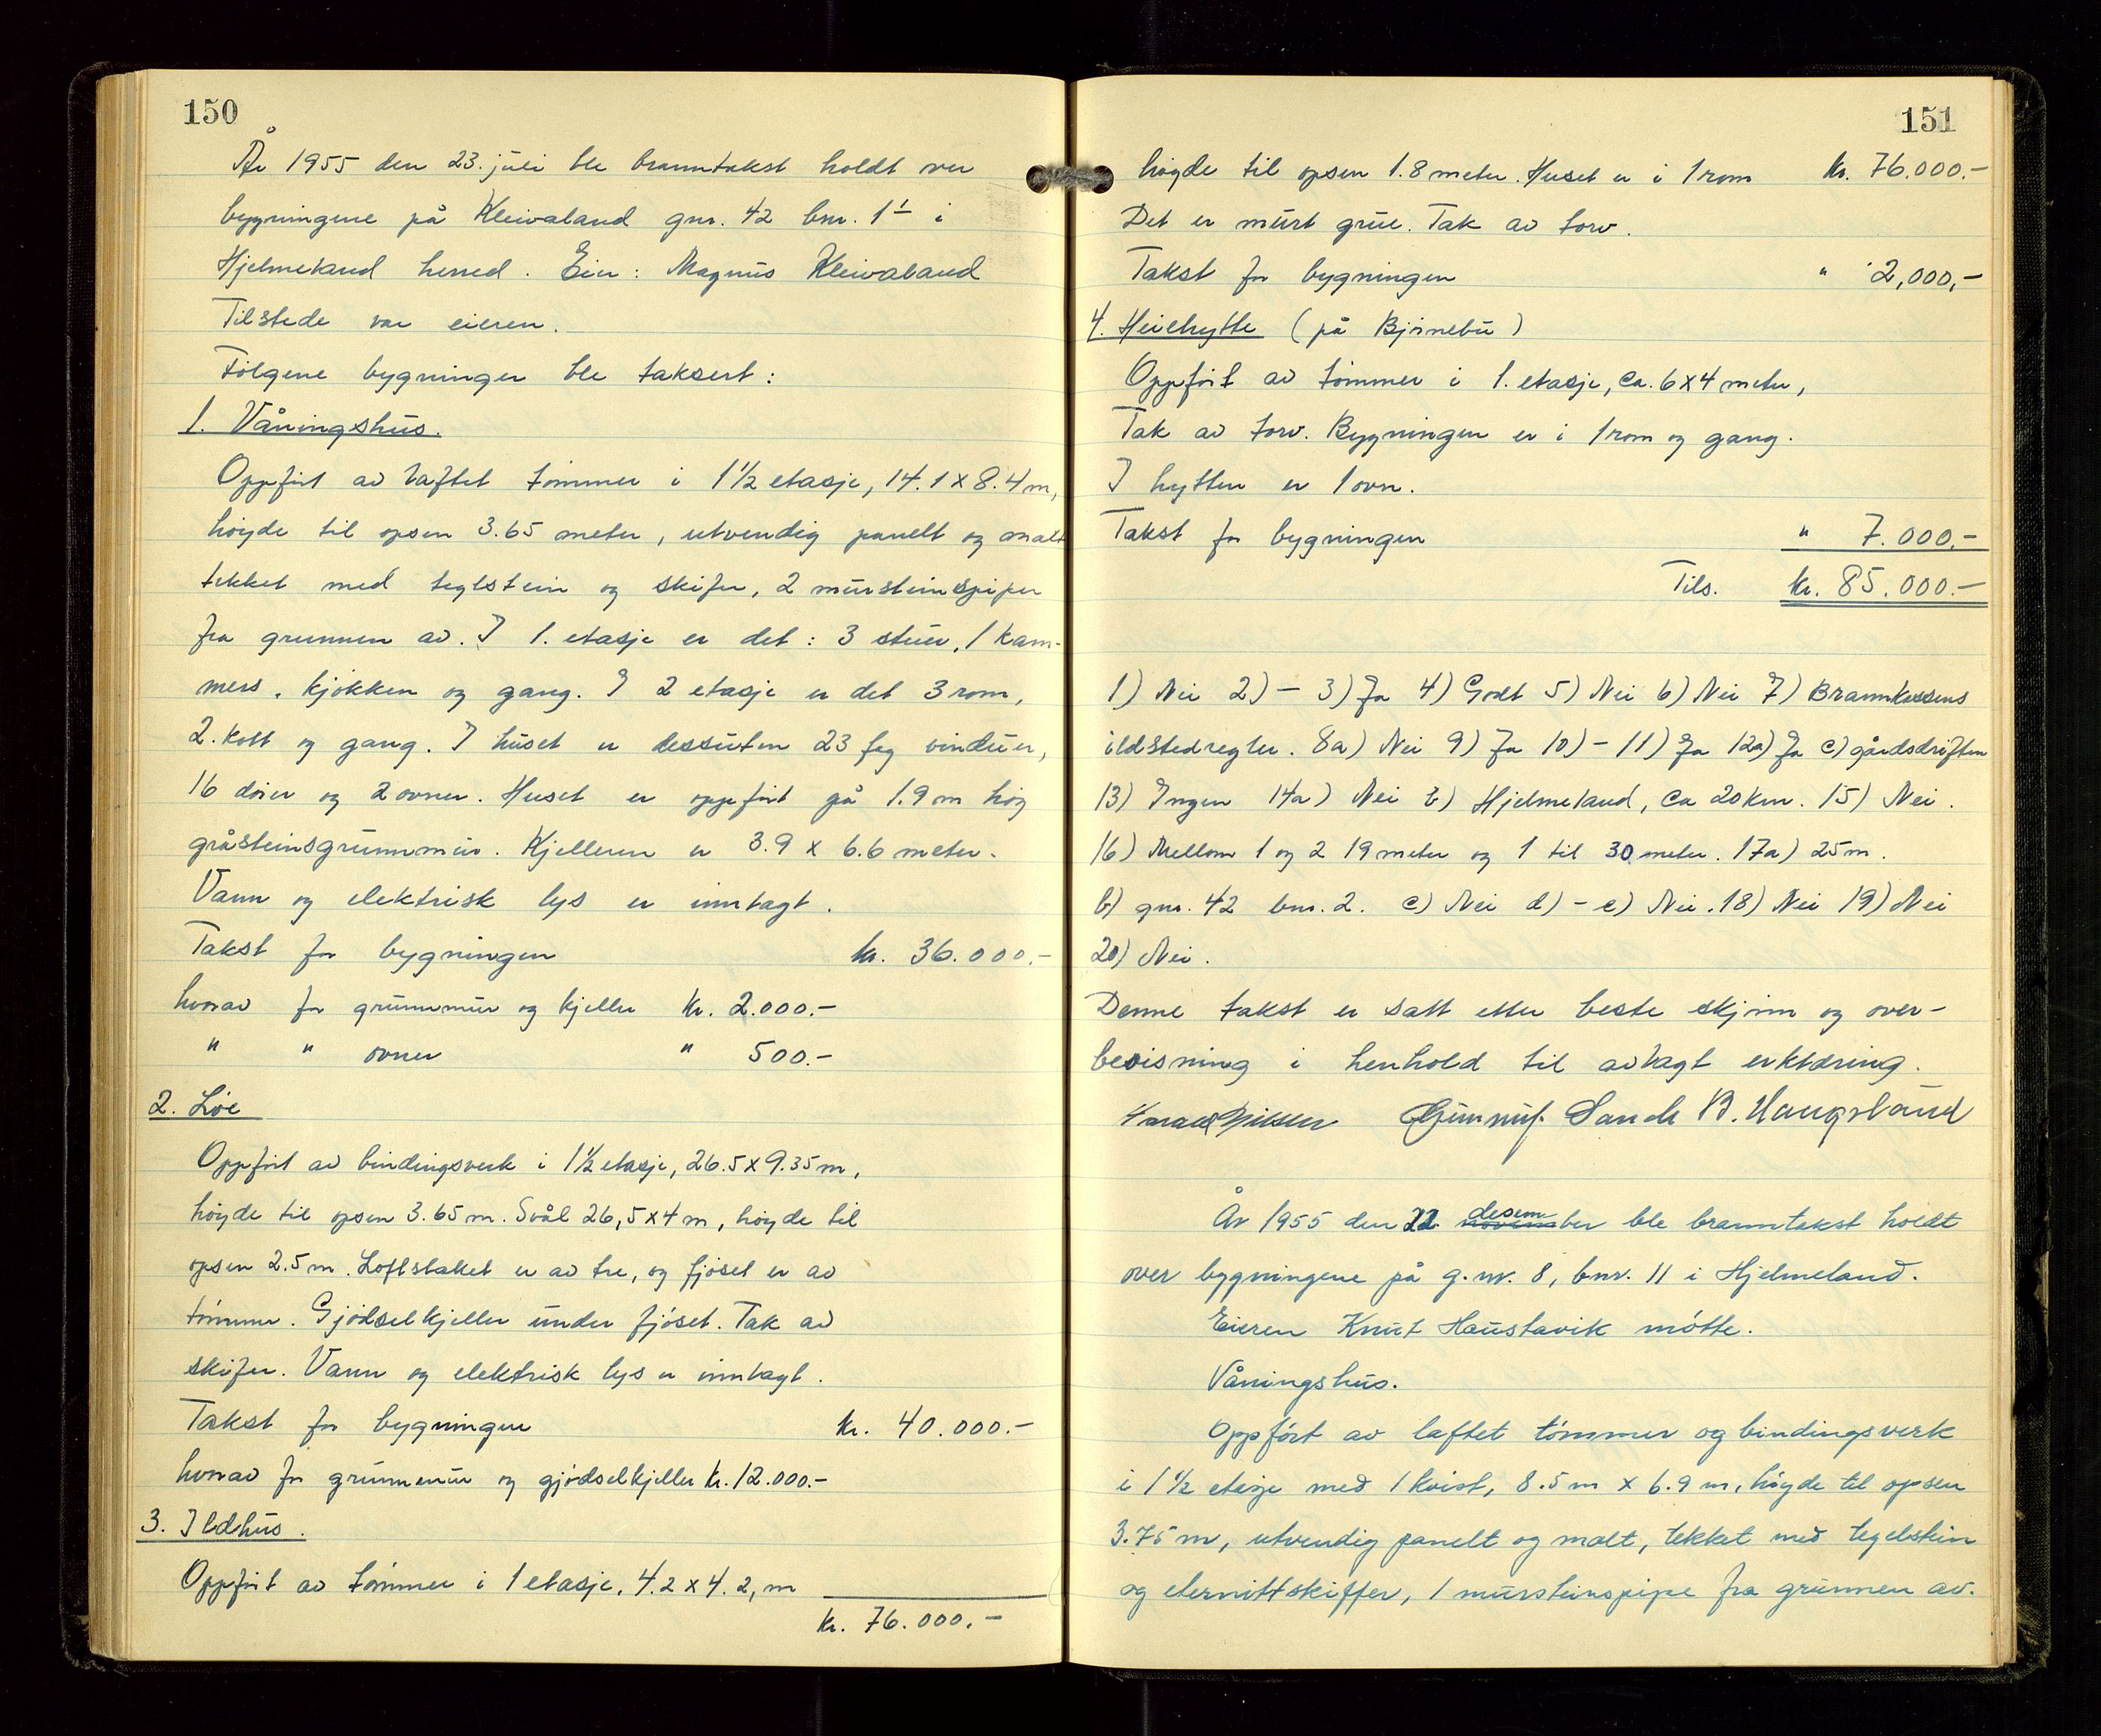 150
År 1955 den 23. juli ble branntakst holdt over
bygningene på Kleivaland gnr. 42 bnr. 1 i
Hjelmeland herred. Eier: Magnus Kleivaland
Tilstede var eieren.
Følgene bygninger ble taksert:
1. Våningshus.
Oppført av laftet tømmer i 1½ etasje, 14.1 x 8.4 m,
høyde til opsen 3.65 meter, utvendig panelt og malt
tekket med teglstein og skifer, 2 mursteinspiper
fra grunnen av. I 1. etasje er det: 3 stuer, 1 kam-
mers, kjøkken og gang. I 2 etasje er det 3 rom,
2. kott og gang. I huset er dessuten 23 fag vinduer,
16 dører og 2 ovner. Huset er oppført på 1.9 m høg
gråsteinsgrunnmur. Kjelleren er 3.9 x 6.6 meter.
Vann og elektrisk lys er innlagt.
Takst for bygningen kr. 36.000.-
hvorav for grunnmur og kjeller kr. 2.000.-
" " ovner " 500.-
2. Løe
Oppført av bindingsverk i 1½ etasje, 26.5 x 9.35 m,
høyde til opsen 3.65 m. Svål 26,5 x 4 m, høyde til
opsen 2.5 m. Loftstaket er av tre, og fjøset er av
tømmer. Gjødselkjeller under fjøset. Tak av
skifer. Vann og elektrisk lys er innlagt.
Takst for bygningen kr. 40.000.-
hvorav for grunnmur og gjødselkjeller kr. 12.000.-
3. Ildhus.
Oppført av tømmer i 1 etasje, 4.2 x 4.2, m
kr. 76.000.-
151
høyde til opsen 1.8 meter. Huset er i 1 rom kr. 76.000.-
Det er murt grue. Tak av torv.
Takst for bygningen " 2,000,-
4. Heiehytte (på Bjørnebu)
Oppført av tømmer i 1. etasje, ca. 6 x 4 meter,
Tak av torv. Bygningen er i 1 rom og gang.
I hytten er 1 ovn.
Takst for bygningen " 7.000.-
Tils. kr. 85.000.-
1) Nei 2) - 3) Ja 4) Godt 5) Nei 6) Nei 7) Brannkassens
ildstedregler. 8a) Nei 9) Ja 10) - 11) Ja 12a) Ja c) gårdsdriften
13) Ingen 14a) Nei b) Hjelmeland, ca 20 km. 15) Nei.
16) Mellom 1 og 2 19 meter og 1 til 30 meter. 17a) 25 m.
b) gnr. 42 bnr. 2. c) Nei d) - e) Nei. 18) Nei 19) Nei
20) Nei.
Denne takst er satt etter beste skjønn og over-
bevisning i henhold til avlagt erklæring.
Sande B. Haugsland
År 1955 den 22 desem november ble branntakst holdt
over bygningene på g.nr. 8, bnr. 11 i Hjelmeland.
Eieren Knut Haustavik møtte.
Våningshus.
Oppført av laftet tømmer og bindingsverk
i 1½ etasje med 1 kvist, 8.5 m x 6.9 m, høyde til opsen
3.75 m, utvendig panelt og malt, tekket med tegelstein
og eternittskiffer, 1 mursteinspipe fra grunnen av.